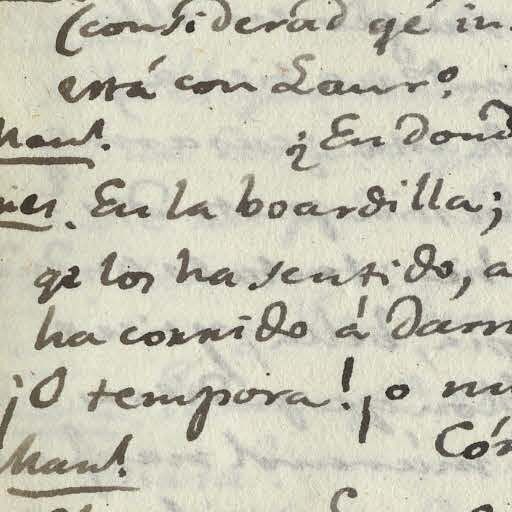 (considerad qe in
está con Laur.o
Manl. ¿En dond
nes. En la boardilla;
qe los ha sentido, a
ha corrido á darm
¡O tempora! ¡o m
Manl. Có